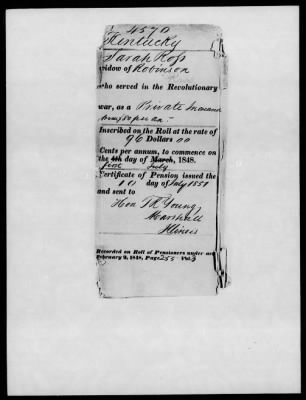 4570
Kentucky
Sarah Ross
widow of Robinson
who served in the Revolutionary
war, as a Private Increased
from $80 per an.
Inscribed on the Roll at the rate of
96 Dollars 00
Cents per annum, to commence on
the 4th day of March, 1848.
July
Certificate of Pension issued the
10 day of July 1851
and sent to
Hon T R Young
Marshall
Illinois
Recorded on Roll of Pensioners under act
February 2, 1848, Page 255